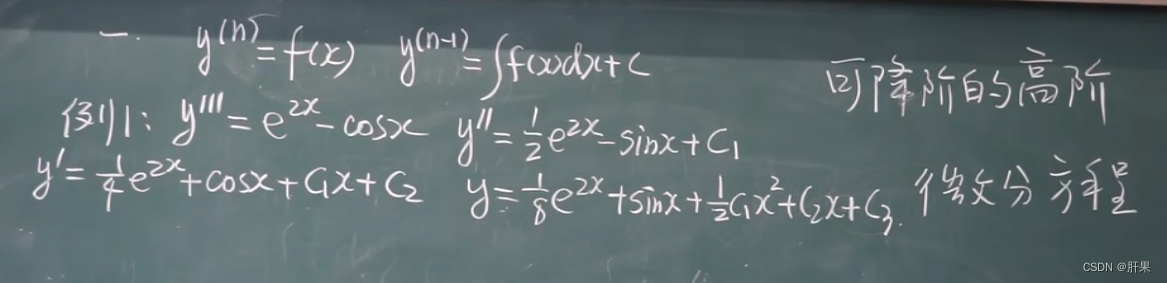 一. y⁽ⁿ⁾=f(x) y⁽ⁿ⁻¹⁾=∫f(x)dx+C
可降阶的高阶
例1: y'''=e²ˣ-cosx y''=½e²ˣ-sinx+C₁
y'=¼e²ˣ+cosx+C₁x+C₂ y=⅛e²ˣ+sinx+½C₁x²+C₂x+C₃.
微分方程
CSDN @肝果